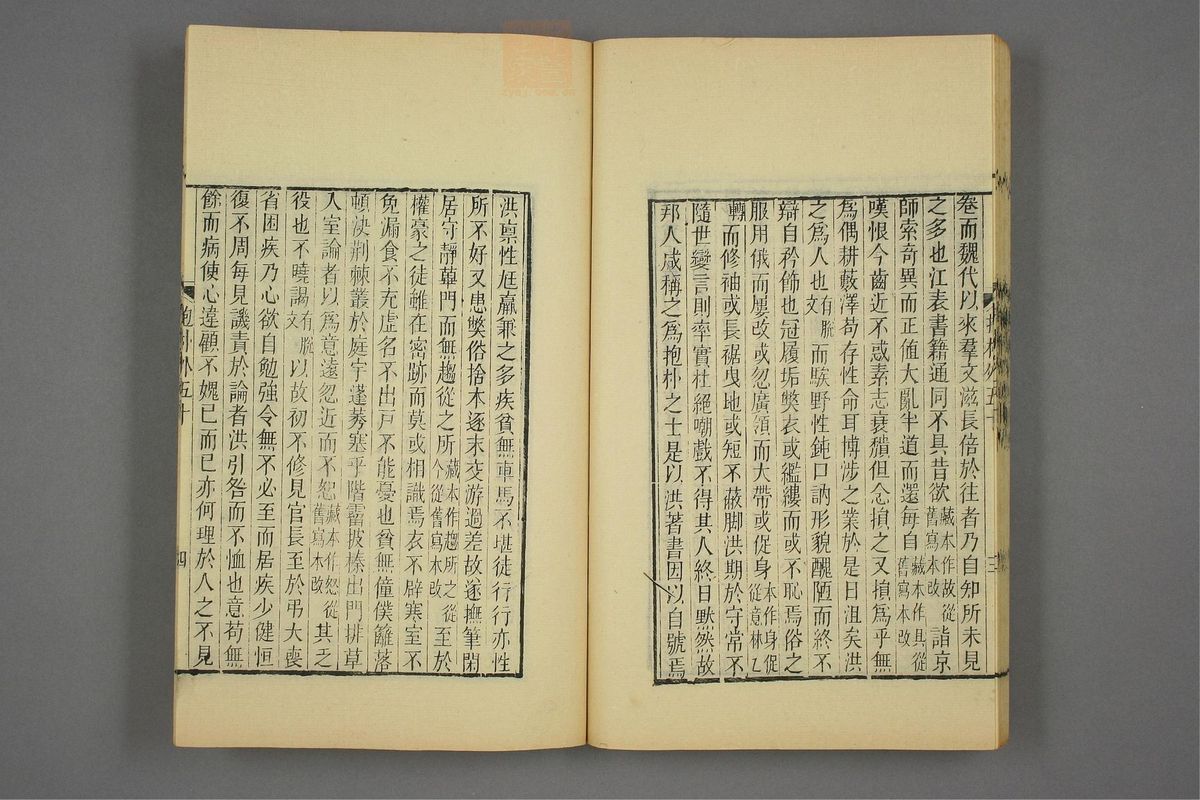 卷而魏代以來羣文滋長倍於往者乃自知所未見
之多也江表書籍通同不具昔欲藏本作故從舊寫本改詣京
師索奇異而正值大亂半道而還每自藏本作具從舊寫本改
嘆恨今齒近不惑素志衰頹但念損之又損爲乎無
爲偶耕藪澤苟存性命耳博涉之業於是日沮矣洪
之爲人也有脫文而騃野性鈍口訥形貌醜陋而終不
辯自矜飾也冠履垢弊衣或繿縷而或不恥焉俗之
服用俄而屢改或忽廣領而大帶或促身本作身促從意林乙
轉而修袖或長裾曳地或短不蔽脚洪期於守常不
隨世變言則率實杜絕嘲戲不得其人終日默然故
邦人咸稱之爲抱朴之士是以洪著書因以自號焉
抱朴外五十
三
洪禀性尪羸兼之多疾貧無車馬不堪徒行行亦性
所不好又患弊俗捨本逐末交游過差故遂撫筆閑
居守靜蓽門而無趨從之所藏本作趨所之從今從舊寫本改至於
權豪之徒雖在密跡而莫或相識焉衣不辟寒室不
免漏食不充虛名不出戸不能憂也貧無僮僕籬落
頓決荆棘叢於庭宇蓬莠塞乎階霤披榛出門排草
入室論者以爲意遠忽近而不恕藏本作怒從舊寫本改其乏
役也不曉謁有脫文以故初不修見官長至於弔大喪
省困疾乃心欲自勉強令無不必至而居疾少健恒
復不周每見譏責於論者洪引咎而不恤也意苟無
餘而病使心違顧不媿已而已亦何理於人之不見
抱朴外五十
四